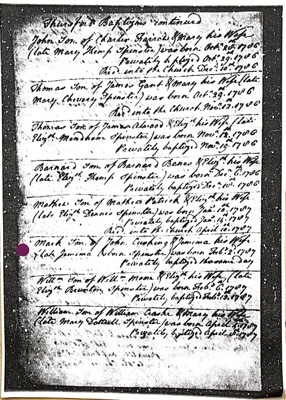 Thursford Baptisms continued
John Son of Charles Francis & Mary his Wife
(late Mary Thump Spinster) was born Oct. 20. 1786
Privately baptized Oct. 29. 1786
Rec'd into the Church Dec. 10th 1786
Thomas Son of James Gant & Mary his Wife (late
Mary Chevery Spinster) was born Oct. 29. 1786
Rec'd into the Church Nov. 12. 1786
Thomas Son of James Atwood & Eliz. his Wife (late
Eliz. Mendham Spinster) was born Nov. 12. 1786
Privately baptized Nov. 19. 1786
Barnard Son of Barnard Banes & Eliz. his Wife
(late Eliz. Thump Spinster) was born Dec. 6. 1786
Privately baptized Dec. 10. 1786
Mathew Son of Mathew Patrick & Eliz. his Wife
(late Eliz. Spinster) was born Jan. 10. 1787
Privately baptized Jan. 14. 1787
Rec'd into the Church April 10. 1787
Mark Son of John Cushing & Jemima his Wife
(late Jemima Spinster) was born Feb. 2. 1787
Privately baptized the same Day
Willm Son of Willm & Eliz. his Wife (late
Eliz. Spinster) was born Feb. 6. 1787
Privately baptized Feb. 1787
William Son of William & Mary his Wife
(late Mary Spinster) was born April 1787
Privately baptized April 1787